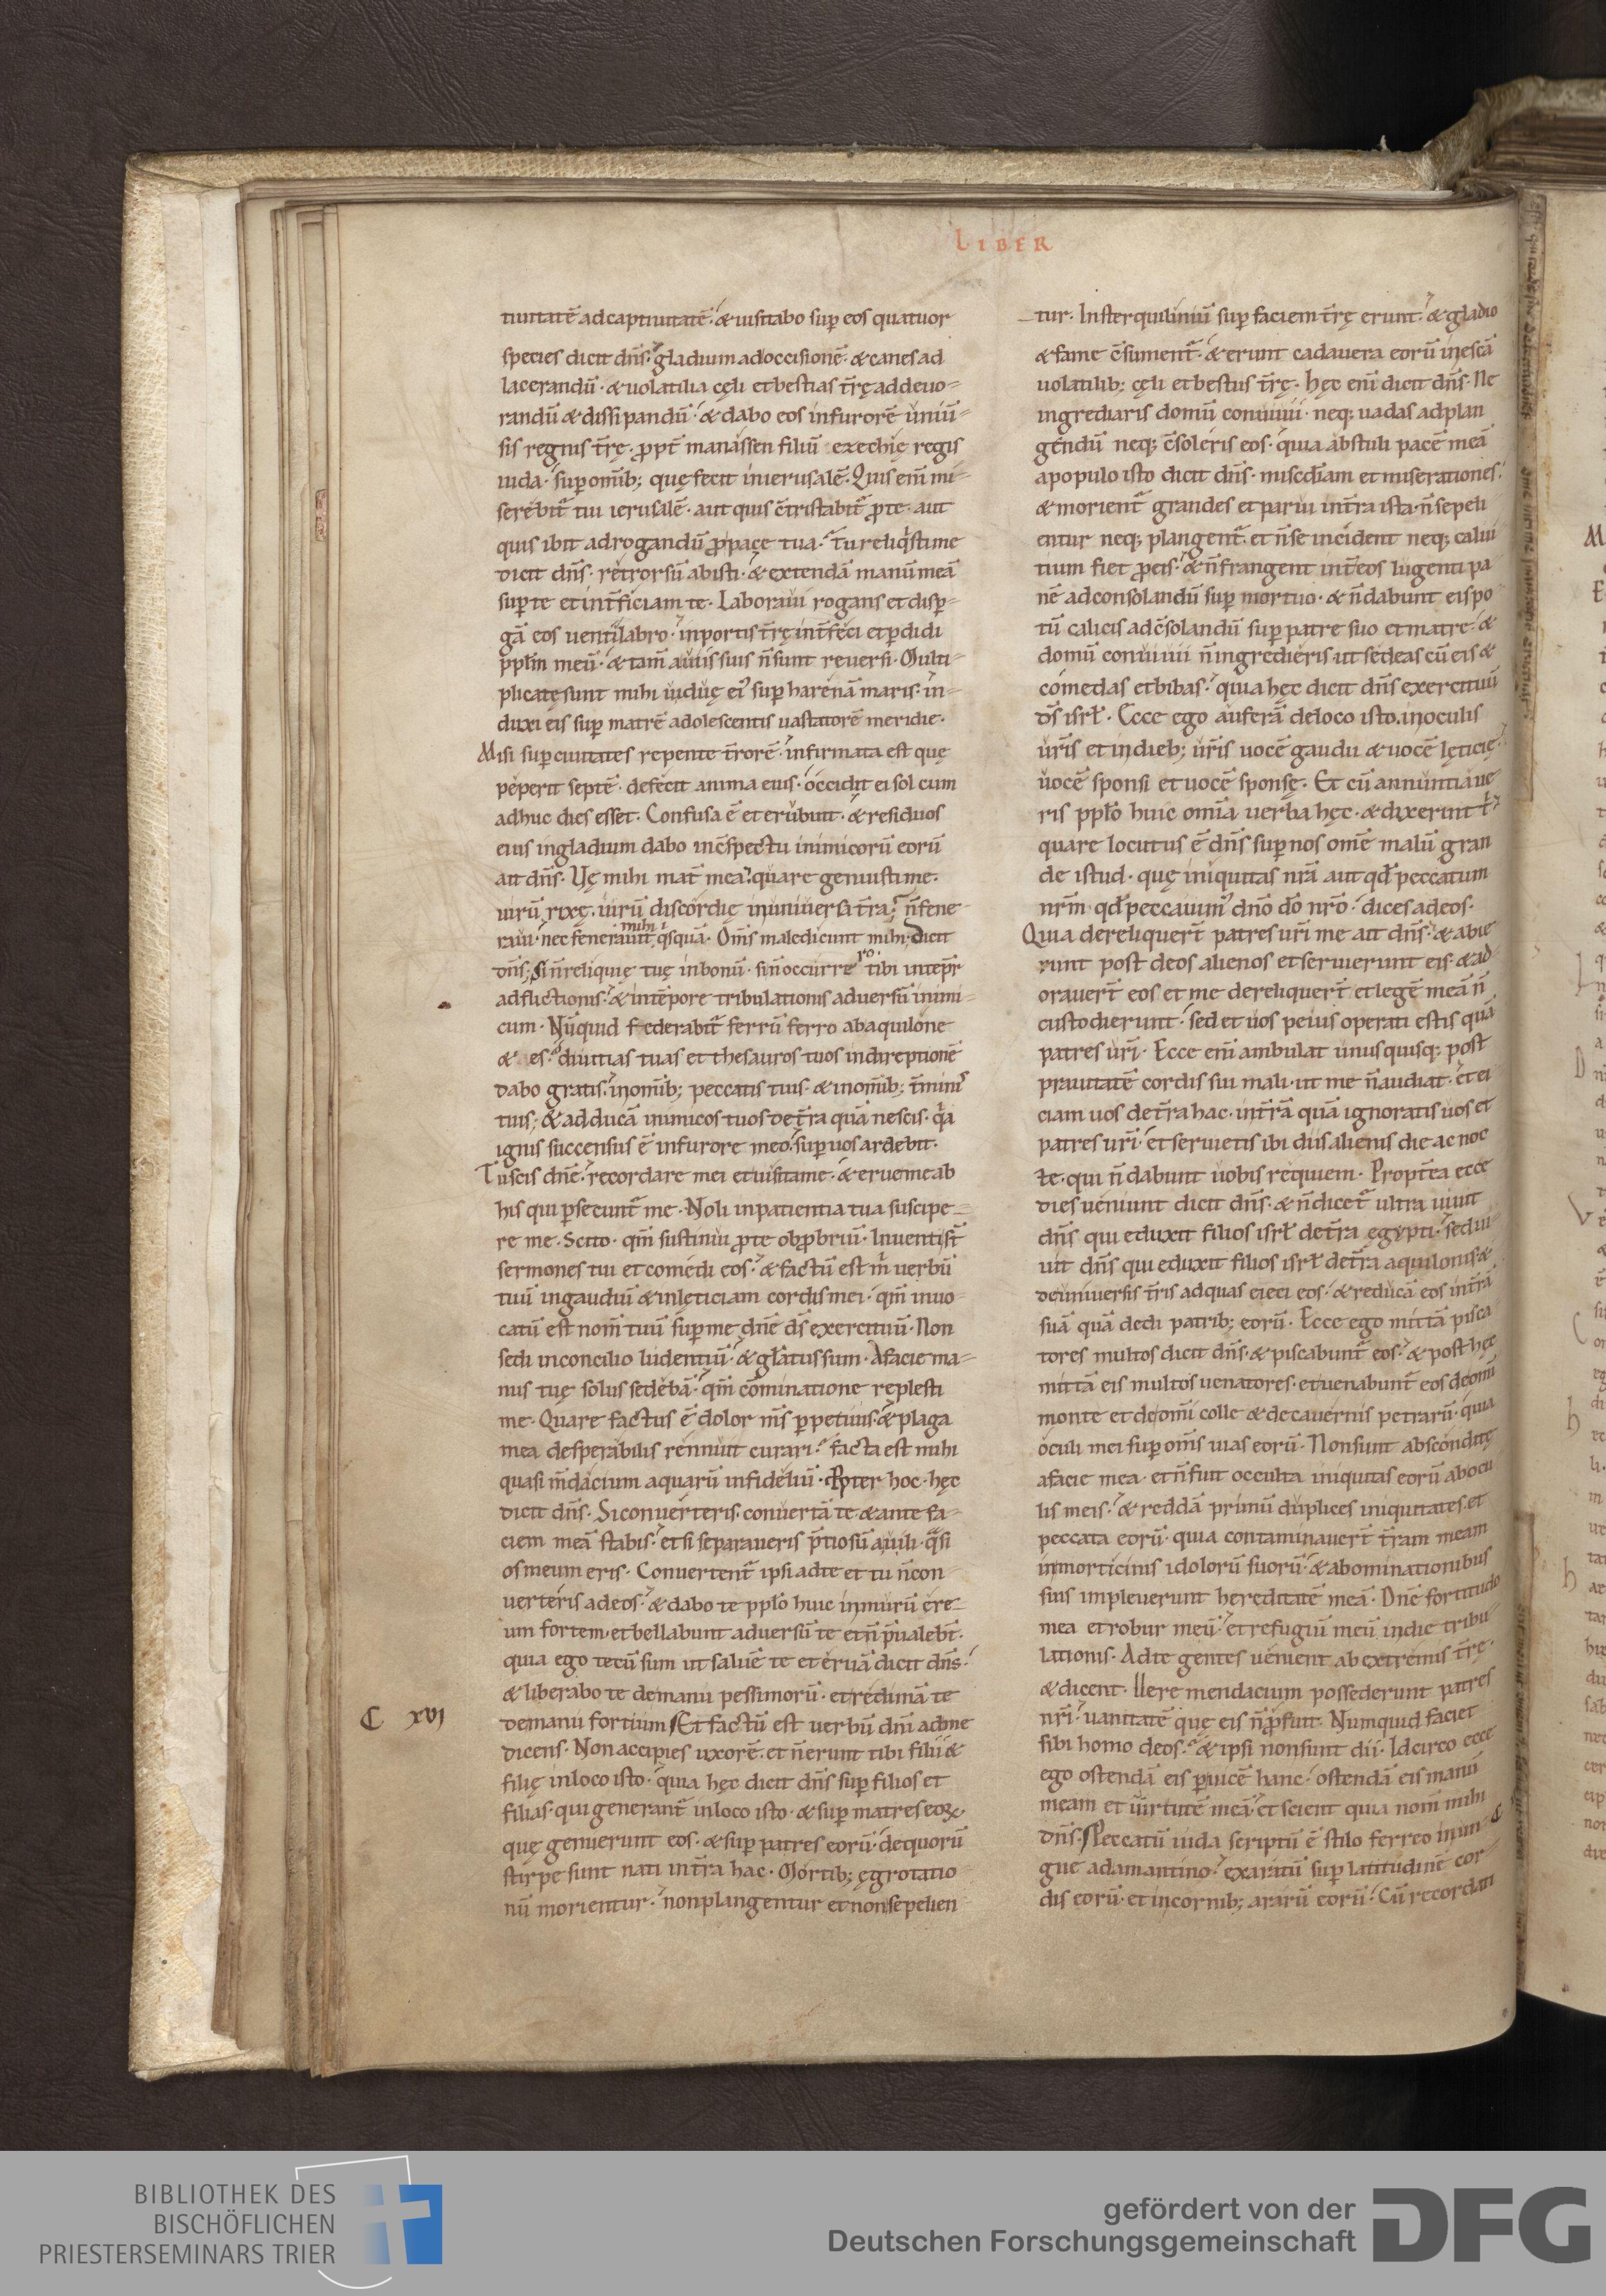 LIBER
tiuitatē ad captiuitatē. & uisitabo sup̱ eos quatuor
species dicit dñs. gladium ad occisionē. & canes ad
lacerandū. & uolatilia cęli et bestias t̄rę ad deuo-
randū & dissipandū. & dabo eos in furorē uniū-
sis regnis t̄rę. ꝓpt̄ manassen filiū ezechię regis
iuda. sup̱ om̄ib; quę fecit in ierusalē. Quis eni̅ mi-
serebit̄ tui ierusalē. aut quis c̄tristabit̄ ꝓ te. aut
quis ibit ad rogandū ꝓ pace tua. Tu reliq̇sti me
dicit dñs. retrorsū abisti. & extendā manū meā
sup̱ te et int̄ficiam te. Laboraui rogans et disp̱-
gā eos uentilabro. in portis t̄rę int̄feci et p̱didi
pplm̄ meū. & tam̄ a uiis suis n̄ sunt reuersi. Multi-
plicatę sunt mihi uiduę ei' sup̱ harenā maris. in-
duxi eis sup̱ matrē adolescentis uastatorē meridie.
Misi sup̱ ciuitates repente t̄rorē. infirmata est quę
peperit septē. defecit anima eius. occidit ei sol cum
adhuc dies esset. Confusa ē et erubuit. & residuos
eius in gladium dabo in c̄spectu inimicorū eorū
ait dñs. Vę mihi mat̄ mea. quare genuisti me.
uirū rixę. uirū discordię in uniuersa t̄ra. n̄ fene-
mihi
raui. nec fenerauit q̇squā. Om̄s maledicunt mihi. Dicit
ro
dñs; Si n̄ reliquię tuę in bonū. si n̄ occurre tibi in tep̄r
adflictionis. & in tēpore tribulationis aduersū inimi-
cum. Nūquid federabit̄ ferrū ferro ab aquilone
& es. diuitias tuas et thesauros tuos in direptionē
dabo gratis. in om̄ib; peccatis tuis. & in om̄ib; t̄mini'
tuis; & adducā inimicos tuos de t̄ra quā nescis. q̇a
ignis succensus ē in furore meo. sup̱ uos ardebit.
Tu scis dn̄e. recordare mei et uisita me. & erue me ab
his qui p̱secunt̄ me. Noli in patientia tua suscipe-
re me. Scito. qm̄ sustinui ꝓ te obꝓbriū. Inuenti st̄
sermones tui et comedi eos. & factū est m̄ uerbū
tuū in gaudiū & in lęticiam cordis mei. qm̄ inuo-
catū est nom̄ tuū sup̱ me dn̄e ds̄ exercituū. Non
sedi in concilio ludentiū. & gl̄atus sum. A facie ma-
nus tuę solus sedebā. qm̄ cōminatione replesti
me. Quare factus ē dolor m̄s p̱petuus. & plaga
mea desperabilis rennuit curari. facta est mihi
quasi m̄dacium aquarū infideliū. Ꝓpter hoc. hęc
dicit dñs. Si conuerteris. conuertā te. & ante fa-
ciem meā stabis. et si separaueris p̄tiosū a uili. q̄si
os meum eris. Conuertent̄ ipsi ad te et tu n̄ con-
uerteris ad eos. & dabo te pplo̅ huic in murū ere-
um fortem. et bellabunt aduersū te et n̄ p̄ualebt̄.
quia ego tecū sum ut saluē te et eruā dicit dñs.
& liberabo te de manu pessimorū. et redimā te
C XVI de manu fortium. Et factū est uerbū dn̄i ad me
dicens. Non accipies uxorē. et n̄ erunt tibi filii &
filię in loco isto. quia hęc dicit dñs sup̱ filios et
filias. qui generant̄ in loco isto. & sup̱ matres eoꝝ.
quę genuerunt eos. & sup̱ patres eorū. de quorū
stirpe sunt nati in t̄ra hac. Mortib; ęgrotatio
nū morientur. non plangentur et non sepelien
tur. In sterquiliniū sup̱ faciem t̄rę erunt. & gladio
& fame c̄sument̄. & erunt cadauera eorū in escā
uolatilib; cęli et bestiis t̄rę. Hęc eni̅ dicit dñs. Ne
ingrediaris domū conuiuii. neq; uadas ad plan
gendū neq; c̄soleris eos. quia abstuli pacē meā
a populo isto dicit dñs. misc̄diam et miserationes.
& morient̄ grandes et parui in t̄ra ista. n̄ sepeli
entur neq; plangent̄. et n̄ se incident neq; calui
tium fiet ꝓ eis. & n̄ frangent int̄ eos lugenti pa
nē ad consolandū sup̱ mortuo. & n̄ dabunt eis po
tū calicis ad c̄solandū sup̱ patre suo et matre. &
domū conuiuii n̄ ingredieris. ut sedeas cū eis &
comedas et bibas. quia hęc dicit dñs exercituū
ds̄ isrl̄. Ecce ego auferā de loco isto. in oculis
ur̄is et in dieb; ur̄is uocē gaudii & uocē lęticię.
uocē sponsi et uocē sponsę. Et cū annuntiaue
ris pplo̅ huic om̄ia uerba hęc. & dixerint t.
quare locutus ē dñs sup̱ nos om̄e malū gran
de istud. quę iniquitas nr̄a aut qd̄ peccatum
nr̄m qd̄ peccauim' dn̄o do̅ nr̄o. dices ad eos.
Quia dereliquer̄t patres ur̄i me ait dñs. & abie
runt post deos alienos et seruierunt eis. & ad
orauer̄t eos et me dereliquer̄t et legē meā n̄
custodierunt. sed et uos peius operati estis quā
patres ur̄i. Ecce eni̅ ambulat unusquisq; post
prauitatē cordis sui mali. ut me n̄ audiat. et ei
ciam uos de t̄ra hac. in t̄rā quā ignoratis uos et
patres ur̄i. et seruietis ibi diis alienis die ac noc
te. qui n̄ dabunt uobis requiem. Propt̄ea ecce
dies ueniunt dicit dñs. & n̄ dicet̄ ultra uiuit
dñs qui eduxit filios isrl̄ de t̄ra egypti. sed ui
uit dñs qui eduxit filios isrl̄ de t̄ra aquilonis. &
de uniuersis t̄ris ad quas eieci eos. & reducā eos in t̄rā
suā quā dedi patrib; eorū. Ecce ego mittā pisca
tores multos dicit dñs. & piscabunt̄ eos. & post hęc
mittā eis multos uenatores. et uenabunt̄ eos de om̄i
monte et de om̄i colle & de cauernis petrarū. quia
oculi mei sup̱ om̄s uias eorū. Non sunt absconditę
a facie mea. et n̄ fuit occulta iniquitas eorū ab ocu
lis meis. & reddā primū duplices iniquitates. et
peccata eorū. quia contaminauer̄t t̄ram meam
in morticinis idolorū suorū. & abominationibus
suis impleuerunt hereditatē meā. Dn̄e fortitudo
mea et robur meū. et refugiū meū in die tribu-
lationis. Ad te gentes uenient ab extremis t̄rę.
& dicent. Uere mendacium possederunt patres
nr̄i. uanitatē quę eis n̄ ꝓfuit. Numquid faciet
sibi homo deos. & ipsi non sunt dii. Idcirco ecce
ego ostendā eis p̱ uicē hanc. ostendā eis manū
meam et uirtutē meā. et scient quia nom̄ mihi
dñs. Peccatū iuda scriptū ē stilo ferreo in un- C
gue adamantino. exaratū sup̱ latitudinē cor-
dis eorū. et in cornib; ararū eorū. Cū recordati
BIBLIOTHEK DES
BISCHÖFLICHEN
PRIESTERSEMINARS TRIER
gefördert von der
Deutschen Forschungsgemeinschaft
DFG